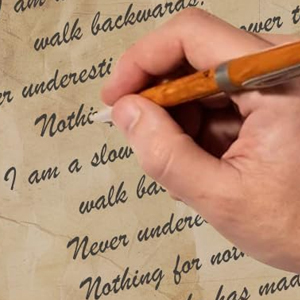 am
walk backwards.
ower t
er underesti
Nothi
I am a slow
walk ba
Never undere
Nothing for nor
has mad